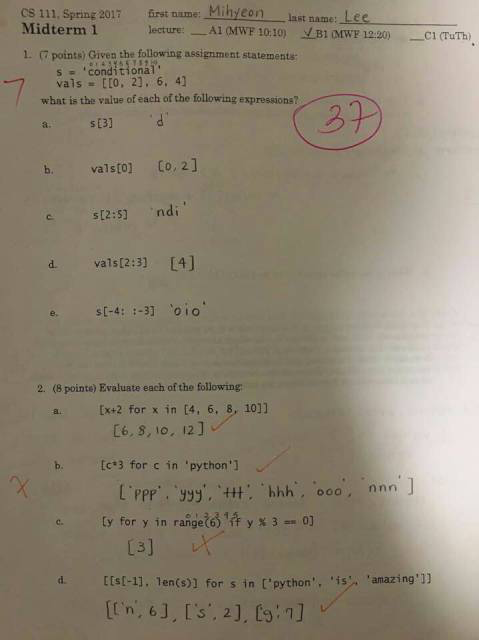 CS 111, Spring 2017 first name: Mihyeon last name: Lee
Midterm 1 lecture: A1 (MWF 10:10) ✓ B1 (MWF 12:20) C1 (TuTh)
1. (7 points) Given the following assignment statements:
s = 'conditional'
vals = [[0, 2], 6, 4]
7
what is the value of each of the following expressions?
37
a. s[3] 'd'
b. vals[0] [0, 2]
c. s[2:5] 'ndi'
d. vals[2:3] [4]
e. s[-4: :-3] 'oio'
2. (8 points) Evaluate each of the following:
a. [x+2 for x in [4, 6, 8, 10]]
[6, 8, 10, 12] ✓
b. [c*3 for c in 'python'] ✓
['ppp', 'yyy', 'ttt', 'hhh', 'ooo', 'nnn']
0 1 2 3 4 5
c. [y for y in range(6) if y % 3 == 0]
[3]
d. [[s[-1], len(s)] for s in ['python', 'is', 'amazing']]
[['n', 6], ['s', 2], ['g', 7] ✓